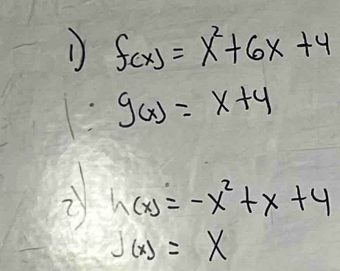 1) f(x) = x²+6x+4
g(x) = x+4
2) h(x) = -x²+x+4
J(x) = x